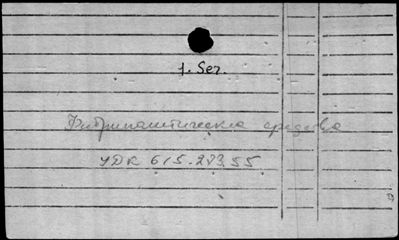 1. Ser.
Фибринолитические средства
УДК 615.273.55